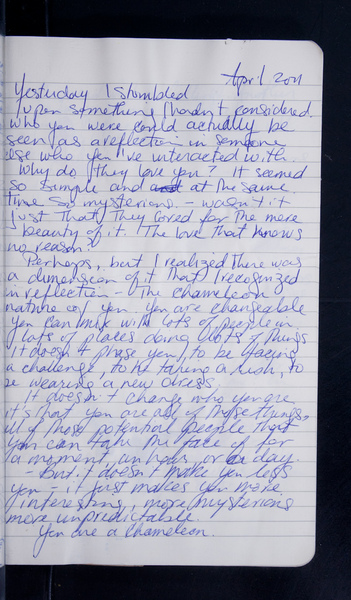 April 2011
Yesturday I stumbled
upon something I hadn't considered.
Who you were could actually be
seen as a reflection in someone
else who you've interacted with.
Why do they love you? It seemed
so simple and at the same
time so mysterious - wasn't it
just that they loved for the mere
beauty of it. The love that knows
no reason?
Perhaps, but I realized there was
a dimension of it that I recognized
in reflection - The chameleon
nature of you. You are changeable
you can mix with lots of people in
lots of places doing lots of things
It doesn't phase you, to be facing
a challenge, to be taking a risk, to
be wearing a new dress.
It doesn't change who you are
it's that you are all of those things,
all of those potential people that
you can take the face of for
a moment, an hour, or a day.
- but it doesn't make you less
you - it just makes you more
interesting, more mysterious
more unpredictable.
You are a chameleon.